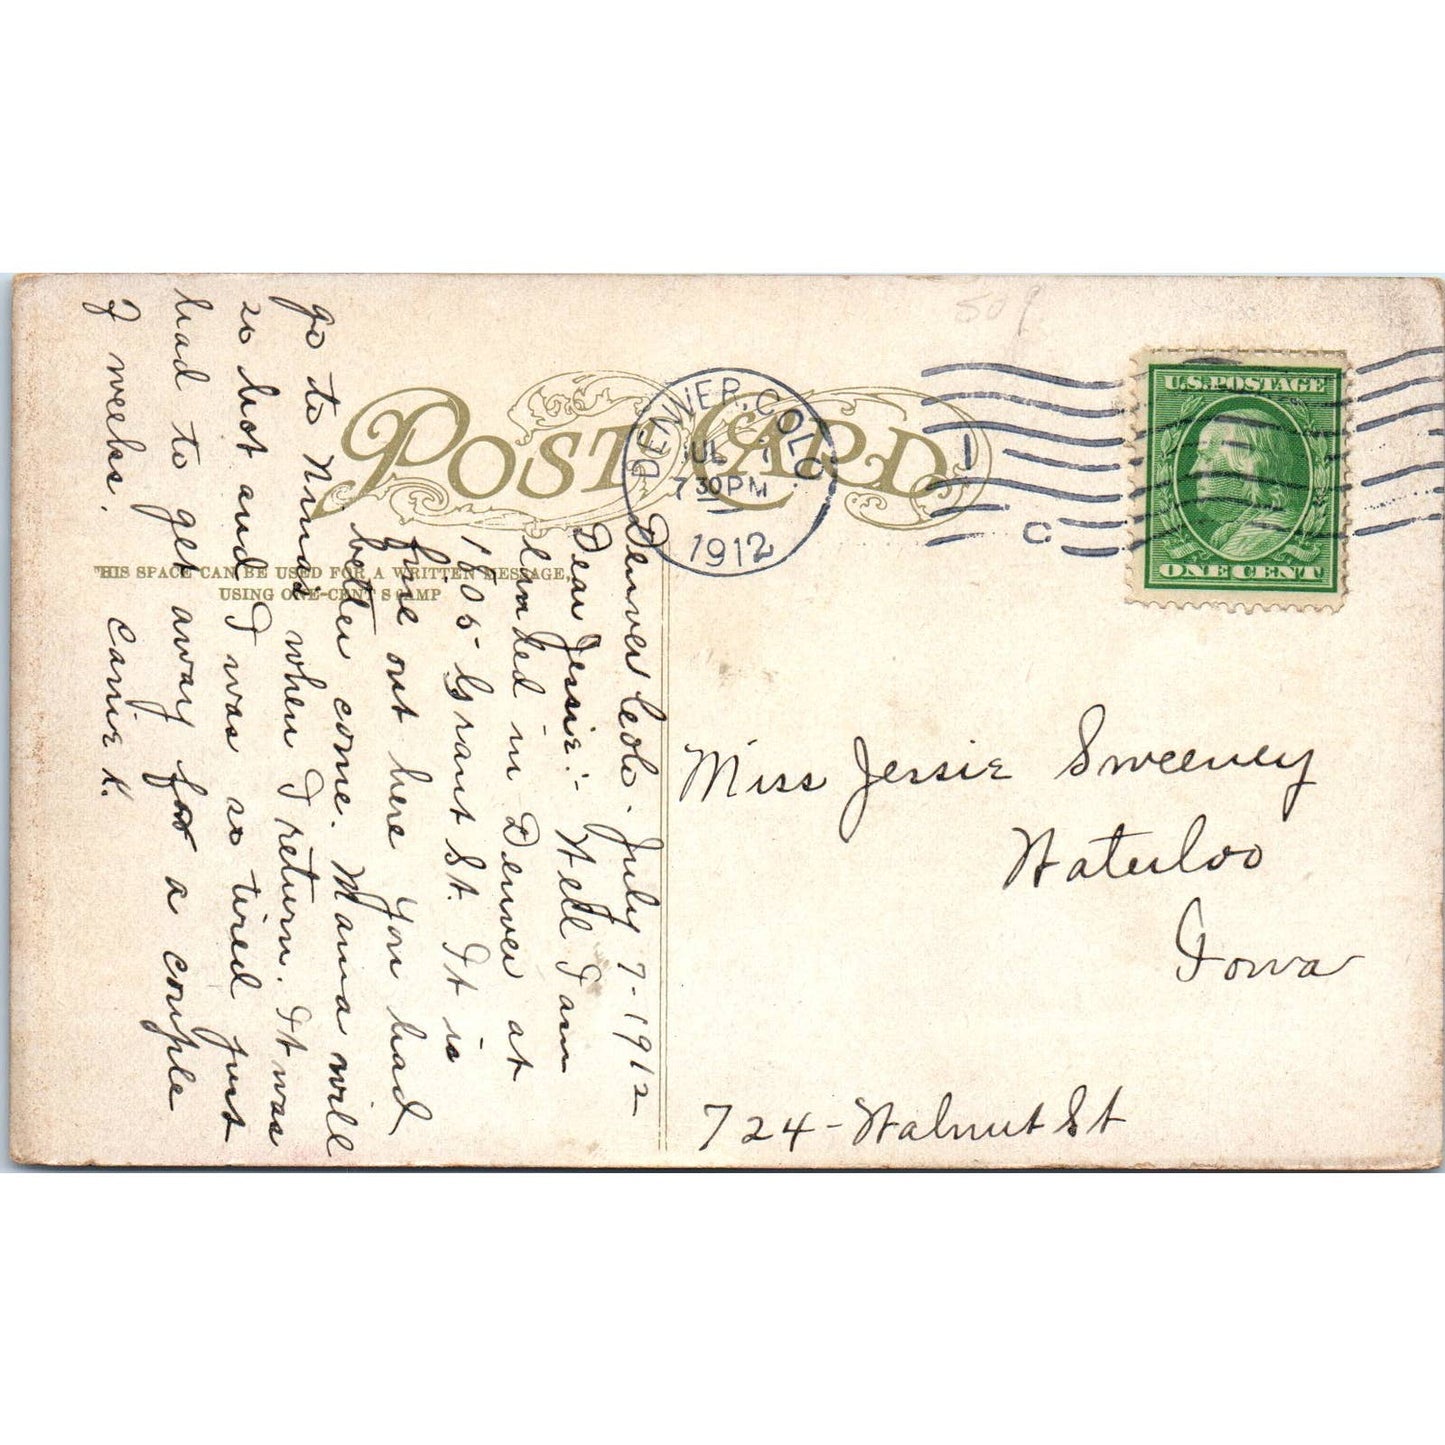 POST CARD
THIS SPACE CAN BE USED FOR A WRITTEN MESSAGE,
USING ONE-CENT STAMP
DENVER, COLO.
JUL 7
7 30 PM
1912
1
C
U.S. POSTAGE
ONE CENT
Denver Colo. July 7-1912
Dear Jessie:- Well I am
landed in Denver at
1805 Grant St. It is
fine out here you had
better come. Mama will
go to Nina's when I return. It was
so hot and I was so tired just
had to get away for a couple
of weeks. Carrie K.
Miss Jessie Sweeney
Waterloo
Iowa
724-Walnut St